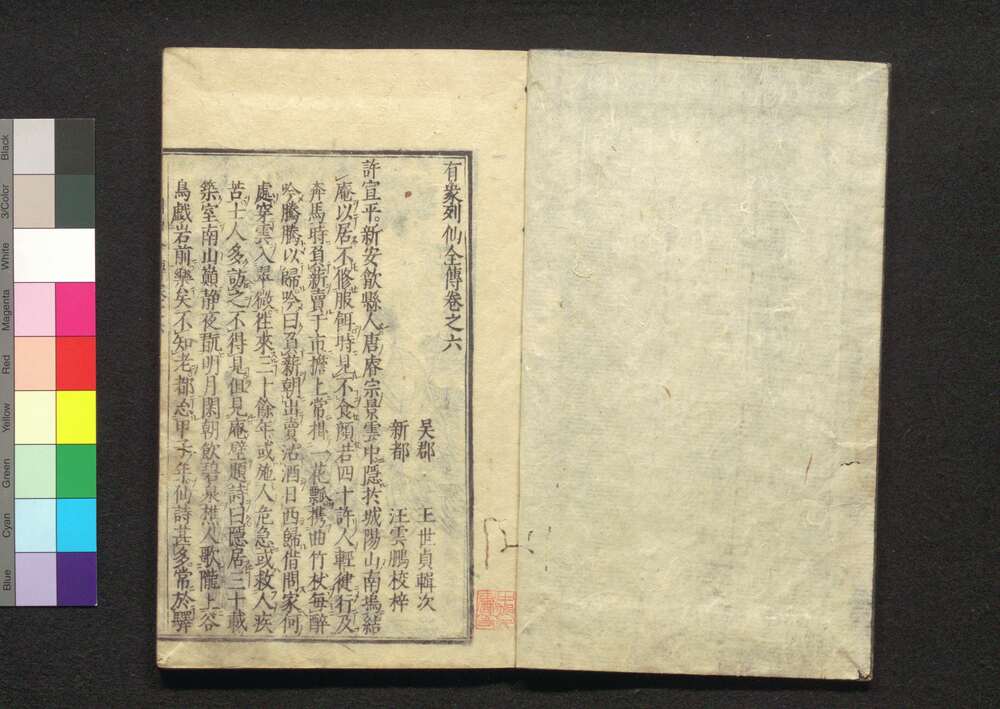 有象列仙全傳卷之六
吳郡 王世貞輯次
新都 汪雲鵬校梓
許宣平。新安歙縣人。唐睿宗景雲中。隱於城陽山南塢結
庵以居。不修服餌。時見不食。顏若四十許人。輕健行及
奔馬。時負薪賣于市。擔上常掛一花瓢。攜曲竹杖。每醉
吟騰騰以歸。吟曰負薪朝出賣。沽酒日西歸。借問家何
處。穿雲入翠微。往來三十餘年。或施人危急。或救人疾
苦。士人多訪之不得見。但見庵壁題詩曰。隱居三十載。
築室南山巔。靜夜翫明月。閑朝飲碧泉。樵人歌隴上。谷
鳥戲岩前。樂矣不知老。都忘甲子年。仙詩甚多。常於驛
Black
3/Color
White
Magenta
Red
Yellow
Green
Cyan
Blue